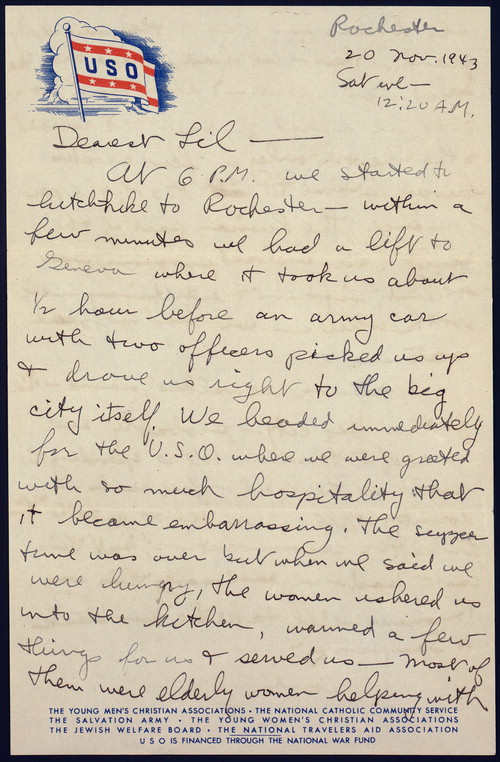 USO
Rochester
20 Nov. 1943
Sat eve—
12:20 A.M.
Dearest Sil —
At 6 P.M. we started to
hitchhike to Rochester — within a
few minutes we had a lift to
Geneva where it took us about
1/2 hour before an army car
with two officers picked us up
& drove us right to the big
city itself. We headed immediately
for the U.S.O. where we were greeted
with so much hospitality that
it became embarrassing. The supper
time was over but when we said we
were hungry, the women ushered us
into the kitchen, warmed a few
things for us & served us — most of
them were elderly women helping with
THE YOUNG MEN'S CHRISTIAN ASSOCIATIONS · THE NATIONAL CATHOLIC COMMUNITY SERVICE
THE SALVATION ARMY · THE YOUNG WOMEN'S CHRISTIAN ASSOCIATIONS
THE JEWISH WELFARE BOARD · THE NATIONAL TRAVELERS AID ASSOCIATION
USO IS FINANCED THROUGH THE NATIONAL WAR FUND